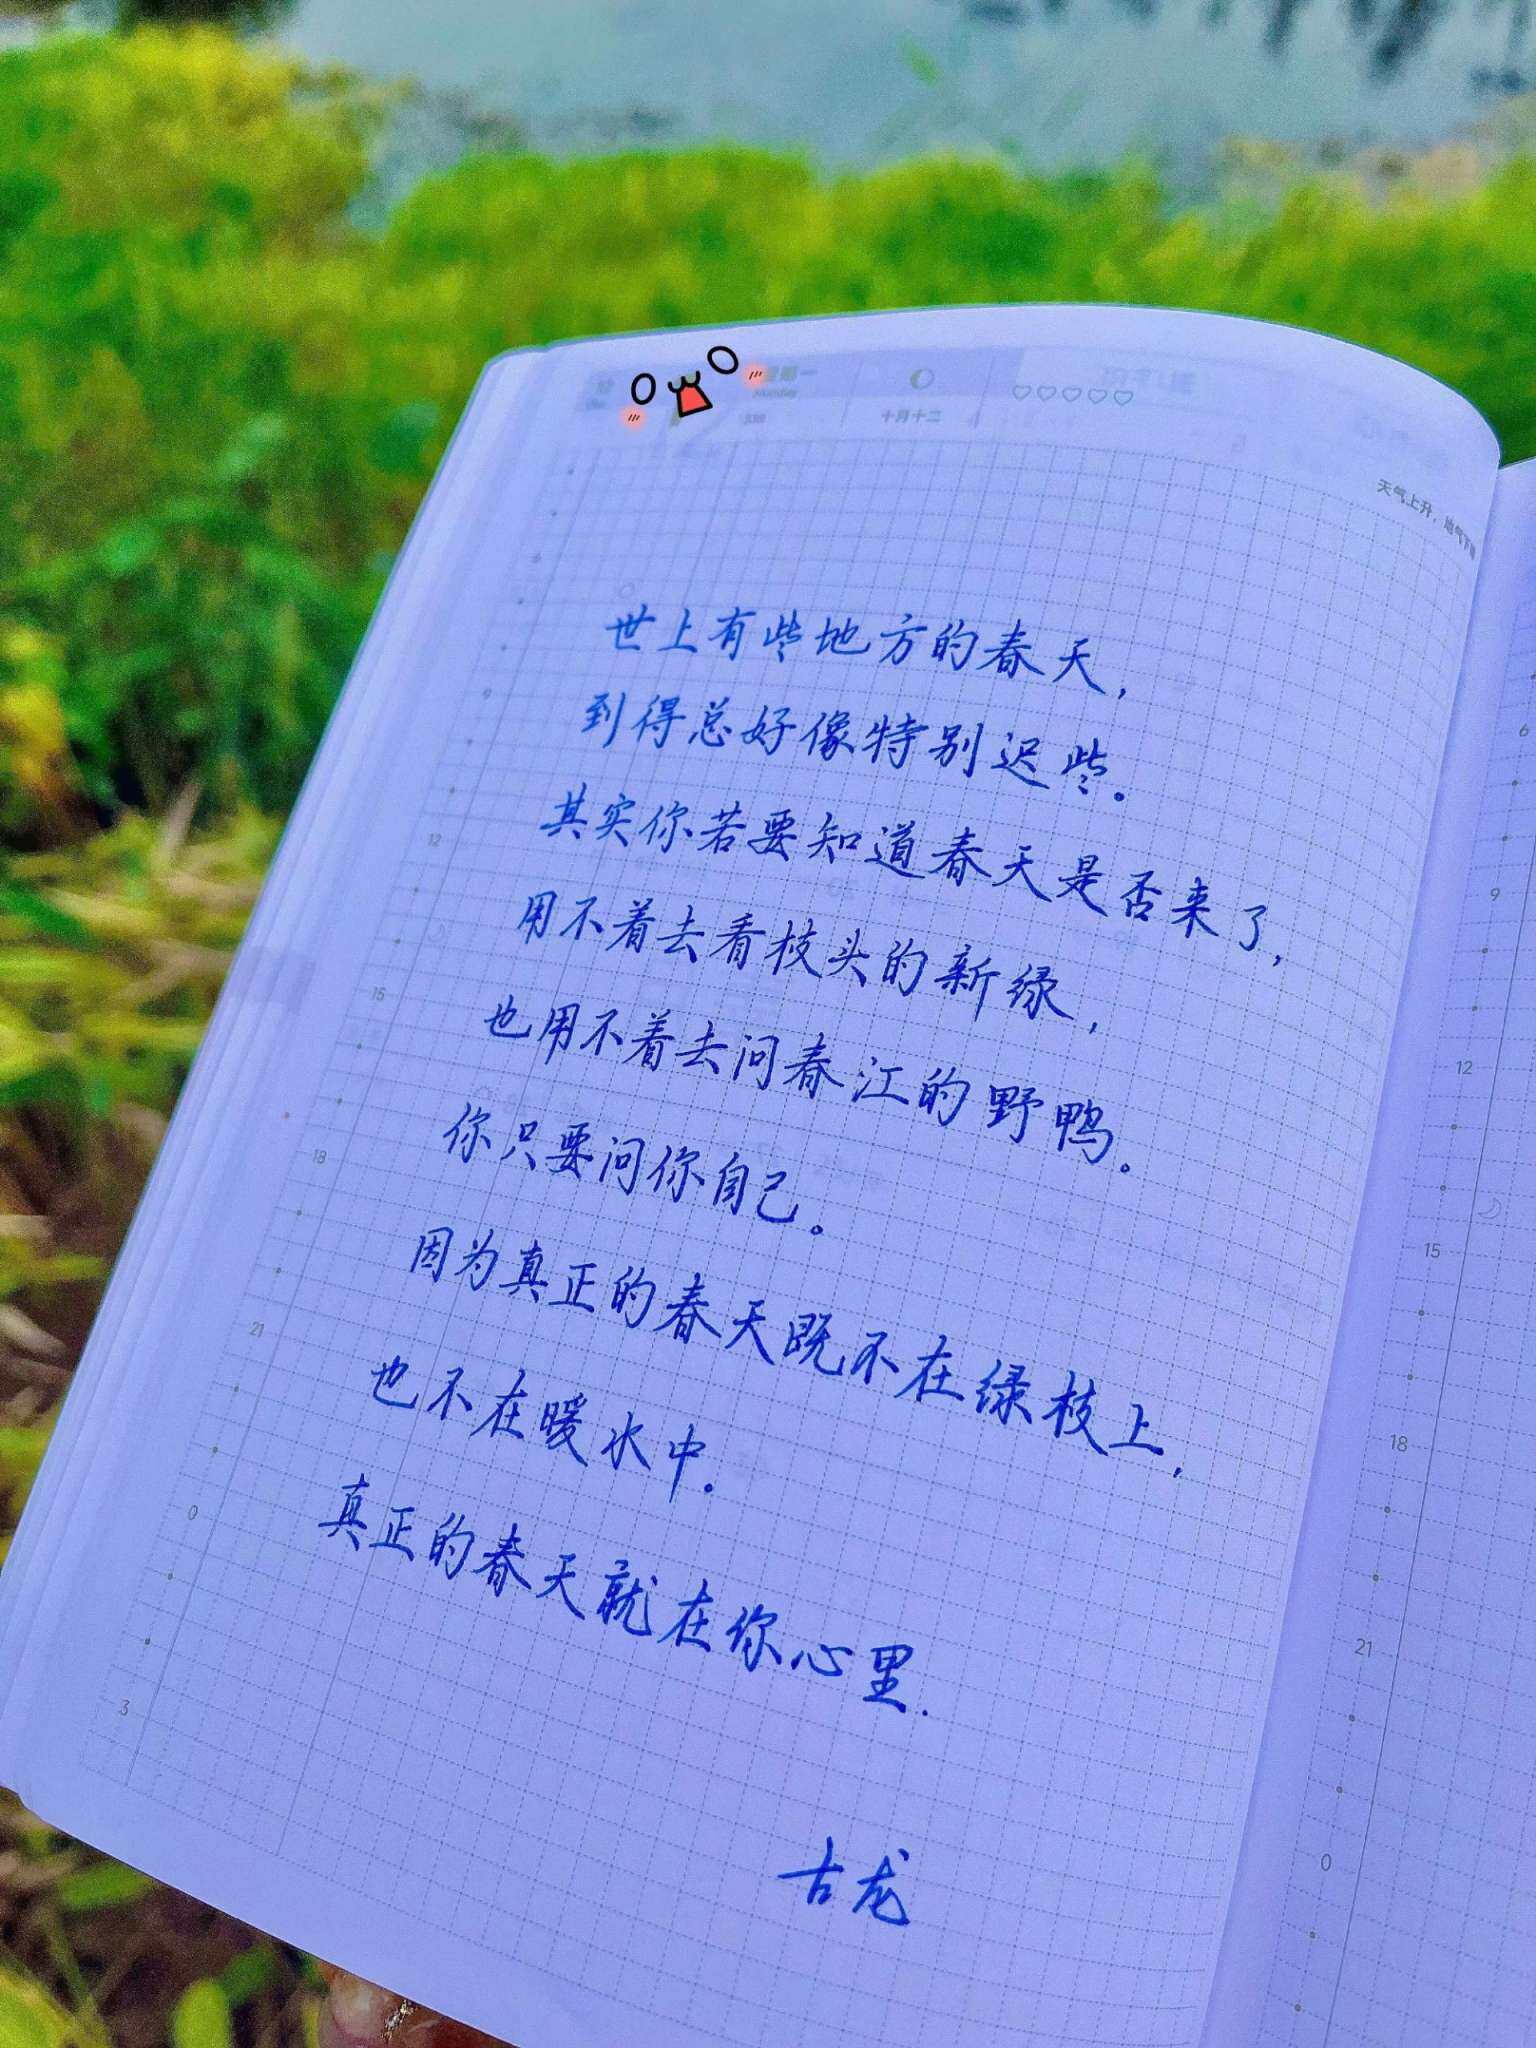 星期一
Monday
336
十月十二
天气上升，地气下
世上有些地方的春天，
到得总好像特别迟些。
其实你若要知道春天是否来了，
用不着去看枝头的新绿，
也用不着去问春江的野鸭。
你只要问你自己。
因为真正的春天既不在绿枝上，
也不在暖水中。
真正的春天就在你心里.
古龙
9
12
15
18
21
0
3
6
9
12
15
18
21
0